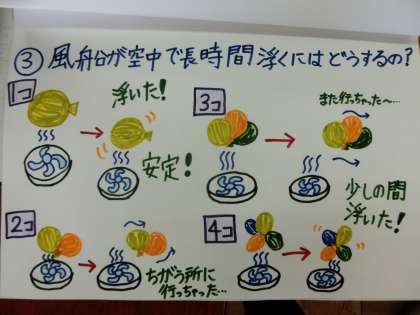 ③ 風船が空中で長時間浮くにはどうするの?
1コ
浮いた!
安定!
2コ
ちがう所に
行っちゃった…
3コ
また行っちゃった〜…
少しの間
浮いた!
4コ